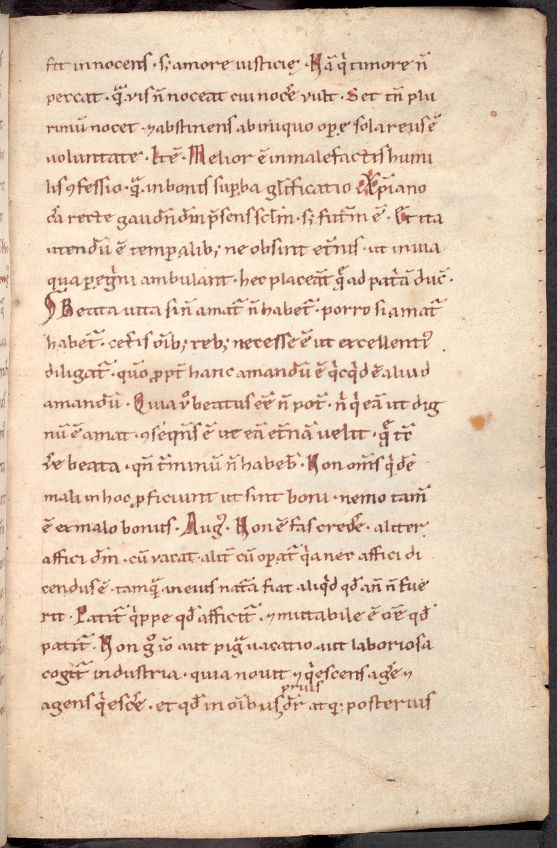 fit innocens · s; amore iusticię · Nā q̇ timore n̄
peccat · q̄uis n̄ noceat cui noċe vult · Set tn̄ plu
rimū nocet · ⁊ abstinens ab iniquo op̄e sola reus ē
uoluntate · Itē · Melior ē in malefactis humi
lis ꝯfessio · q̄ in bonis sup̄ba gl̄ificatio · Xp̄iano
cū recte gaudn̄dm̄ p̄sens sclm̄ · s; futm̄ ē · Et ita
utendū ē temp̄alib; ne obsint et̄nis · ut in uia
qua p̄eg̓ni ambulant · hec placeāt q̄ ad pat̄ā duc̄ ·
Beata uita si n̄ amat̄ n̄ habet̄ · porro si amat̄
habet̄ · cet̄is oīb; reb; necesse ē ut excellenti᷒
diligat̄ · quō ꝓpt̄ hanc amandū ē q̇cq̇d ē aliud
amandū · Quia u̓ beatus eē n̄ pot̄ · n̄ q̇ eā ut dig
nū ē amat · ⁊ seq̄ns ē ut eā et̄nā uelit · q̄
beata · qn̄ t̄minū n̄ habeb̄ · Non om̄s q̇dē
mali in hoc ꝓficiunt ut sint boni · nemo tam̄
ē ex malo bonus · Aug᷒ · Non ē fas creḋe · aliter
affici dm̄ · cū vacat · alit̄ cū opat̄ q̇a nec affici di
cendus ē · tamq̄ in eius nat̄a fiat aliq̇d qd̄ an̄ n̄ fue
rit · Patit̄ q̇ppe qd̄ afficit̄ · ⁊ mutabile ē om̄e qd̄
patit̄ · Non g̊ in īo aut pig̓ uacatio aut laboriosa
cogit̄ industria · quia nouit ⁊ q̇escens aḡe ⁊
agens q̇esc̄e · et qd̄ in oīb; prius dr̄ atq; posterius